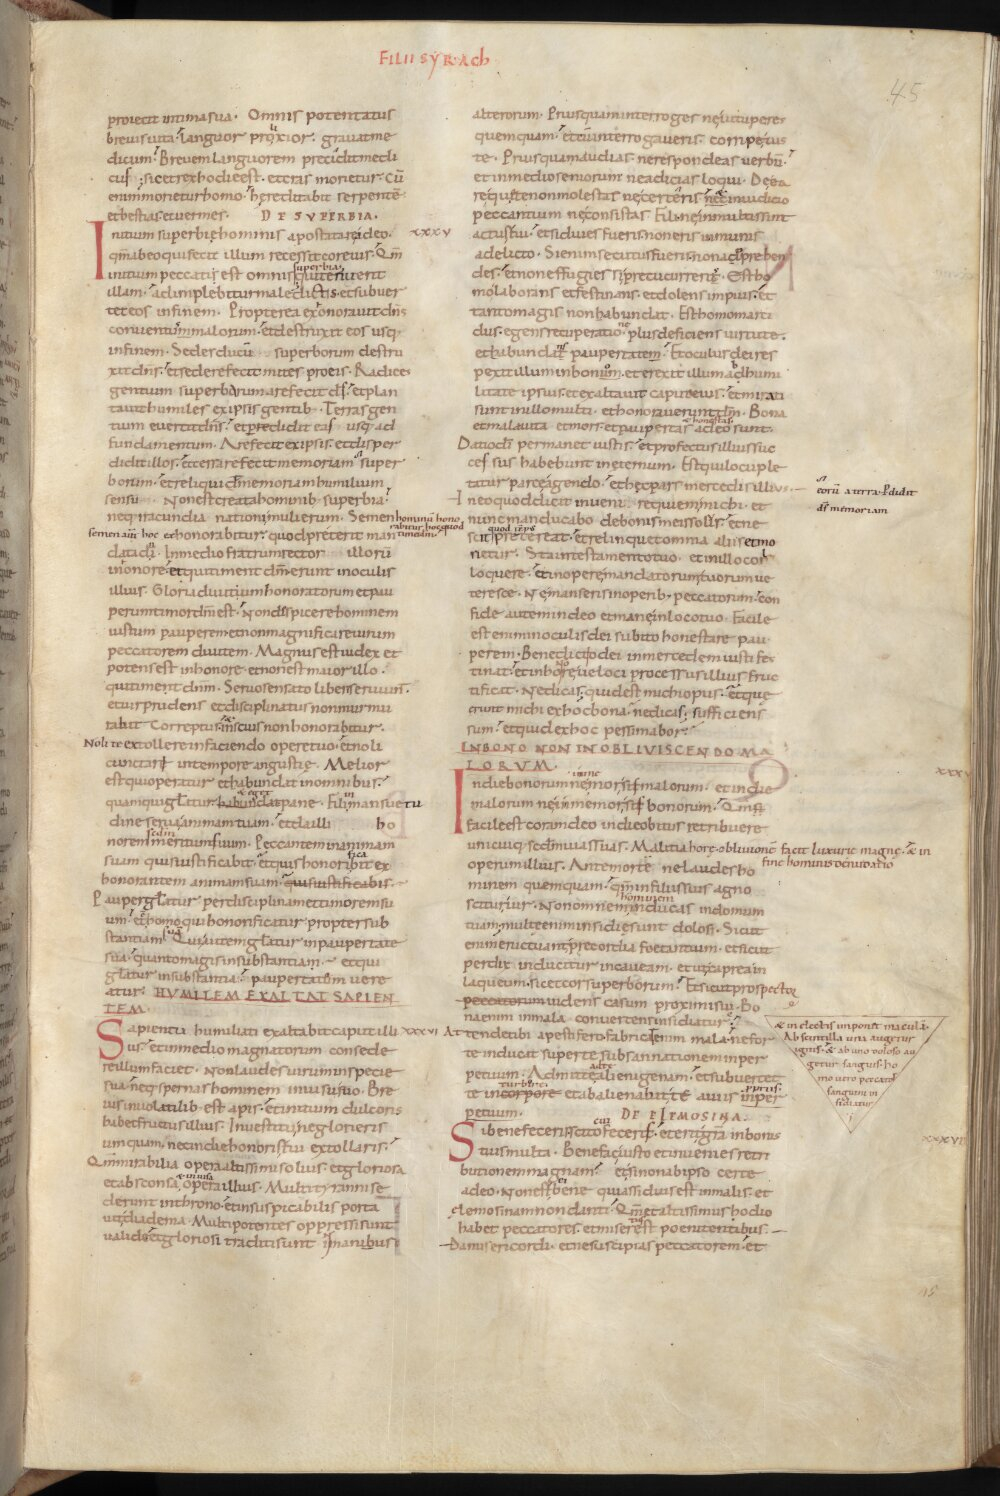 FILII SYRACH
45
proiecit intima sua. Omnis potentatus
brevis vita. languor prolixior. gravat me
dicum. Brevem languorem precidit medi
cus. sic et rex hodie est. et cras morietur. Cū
enim morietur homo. hereditabit serpentē
et bestias. et vermes. DE SUPERBIA.
Initium superbię hominis apostatare a deo.
xxxv
initium peccati est omnis superbia. qui tenuerit
illam. adimplebitur maledictis. et subver
tet eos in finem. Propterea exhonoravit dn̄s
conventum malorum. et destruxit eos usq.
in finem. Sedes ducū superborum destru
xit dn̄s. et sedere fecit mites pro eis. Radices
gentium superbarum arefecit ds̄. et plan
tavit humiles ex ipsis gentib. Terras gen
tium evertit dn̄s. et perdidit eas usq. ad
fundamentum. Arefecit ex ipsis. et disper
didit illos. et cessare fecit memoriam super
borum. et reliquid memoriam humilium
sensu. Non est creata hominib. superbia.
neq. iracundia nationi mulierum. Semen hominū hono
rabitur hoc quod
semen aut̄ hoc exhonorabitur. quod preterit man
data dn̄i. In medio fratrum rector illorū
in honore. et qui timent dn̄m. erunt in oculis
illius. Gloria divitium honoratorum et pau
perum timor dī est. Non despicere hominem
iustum pauperem. et non magnificare virum
peccatorem divitem. Magnus est iudex et
potens est in honore. et non est maior illo.
qui timent dnm. Servo sensato liberi servium.
et vir prudens et disciplinatus non murmu
rabit correptus. et inscius non honorabitur.
Noli te extollere in faciendo opere tuo. et noli
cunctari in tempore angustię. Melior
est qui operatur et habundat in omnibus.
quam qui glatur et eget pane. Fili in mansuetu
dine serva animam tuam. et da illi ho
norem secundum meritum suum. Peccantem in animam
suam quis iustificabit. et quis honorificabit ex
honorantem animam suam. quis iustificabis.
Pauper glatur per disciplinam et timorem su
um. et homo qui honorificatur propter sub
stantiam suā. Qui autem glatur in paupertate
sua. quanto magis in substantiam. et qui
glatur in substantia. paupertatem vere
atur. HUMILEM EXALTAT SAPIEN
TEM.
Sapientia humiliati exaltabit caput illi
xxxvi
us. et in medio magnatorum consede
re illum faciet. Non laudes virum in specie
sua. neq. spernas hominem in visu suo. Bre
vis in volatilib. est apis. et initium dulcoris
habet fructus illius. In vestitu ne glorieris
umquam. nec in die honoris tui extollaris.
Qm̄ mirabilia opera altissimi solius. et gloriosa
et absconsa et invisa opera illius. Multi tyranni se
derunt in throno. et insuspicabilis porta
vit diadema. Multi potentes oppressi sunt
valide. et gloriosi traditi sunt in manibus
alterorum. Priusquam interroges ne vituperes
quemquam. et cum interrogaveris. corripe ius
te. Priusquam audias. ne respondeas verbū.
et in medio seniorum ne adicias loqui. De ea
re que te non molestat ne certeris. nec in iudicio
peccantium ne consistas. Fili. ne in multis sint
actus tui. et si dives fueris. non eris inmunis
a delicto. Si enim secutus fueris. non adprehen
des. et non effugies si precucurreris. Est ho
mo laborans et festinans. et dolens impius. et
tanto magis non habundat. Est homo marci
dus. egens recuperatione. plus deficiens virtute.
et habundans paupertate. Et oculus dei res
pexit illum in bono. et erexit illum ab humi
litate ipsius. et exaltavit caput eius. et mirati
sunt in illo multi. et honoraverunt dm̄. Bona
et mala. vita et mors. et paupertas et honestas a deo sunt.
Datio dī permanet iustis. et profectus illius suc
cessus habebunt in eternum. Est qui locuple
tatur parce agendo. et hec pars mercedis illius.
eorū a terra. Pdidit
ds̄ memoriam
In eo quod dicit inveni requiem michi. et
nunc manducabo de bonis meis solus. et ne
scit quod tēpus pretereat. et relinquet omnia aliis et mo
rietur. Sta in testamento tuo. et in illo con
loquere. et in opere mandatorum tuorum ve
teresce. Ne manseris in operib. peccatorum. con
fide autem in deo et mane in loco tuo. Facile
est enim in oculis dei subito honestare pau
perem. Benedictio dei in mercedem iusti fes
tinat. et in hore veloci processus illius fruc
tificat. Ne dicas. quid est michi opus. et que
erunt michi ex hoc bona. ne dicas. sufficiens
sum. et quid ex hoc pessimabor.
IN BONO NON IN OBLIVISCENDO MA
LORUM.
In die bonorum ne inmemor sis malorum. et in die
xxxv
malorum ne inmemor sis bonorum. Qm̄
facile est coram deo in die obitus retribuere
unicuiq. secundum vias suas. Malitia horę oblivionē facit luxurię magnę. & in
fine hominis denudatio
operum illius. Ante mortē ne laudes ho
minem quemquam. qm̄ in filiis suis agno
scitur vir. Non omnem hominem inducas in domum
tuam. multe enim insidie sunt dolosi. Sicut
enim eructuant precordia foetentium. et sicut
perdix inducitur in caveam. et ut caprea in
laqueum. sic et cor superborum. Et sicut prospector
peccatorum videns casum proximi sui. Bo
na enim in mala convertens insidiatur.
& in electis imponit maculā.
Ab scintilla una augetur
ignis. & ab uno doloso au
getur sanguis. ho
mo vero peccator
sanguini in
sidiatur
Attende tibi a pestifero. fabricat enim mala. ne for
te inducat super te subsannationem in per
petuum. Admitte ad te alienigenam. et subvertet
te in turbore corpore et abalienabit te a viis tuis propriis in per
petuum. DE ELEMOSINA.
Si benefeceris. scito cui feceris. et erit gr̄a in bonis
xxxvii
tuis multa. Benefac iusto et invenies retri
butionem magnam. et si non ab ipso certe
a deo. Non est ei bene qui assiduus est in malis. et
elemosinam non danti. Qm̄ et altissimus hodio
habet peccatores. et misertus est poenitentibus.
Da misericordi. et ne suscipias peccatorem. et
15